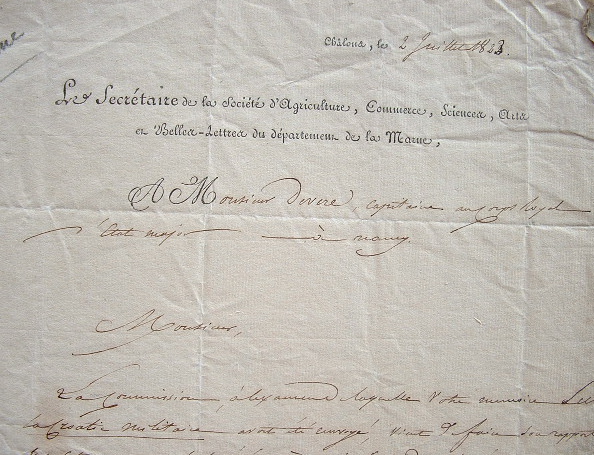 Châlons, le 2 Juillet 1823.
Le Secrétaire de la Société d'Agriculture, Commerce, Sciences, Arts
et Belles-Lettres du département de la Marne,
A Monsieur Devere, capitaine au corps Royal
d'Etat major à nancy.
Monsieur,
La Commission, à l'examen de laquelle Votre memoire Sur
la Croatie militaire avait été envoyé, vient d'faire son rapport